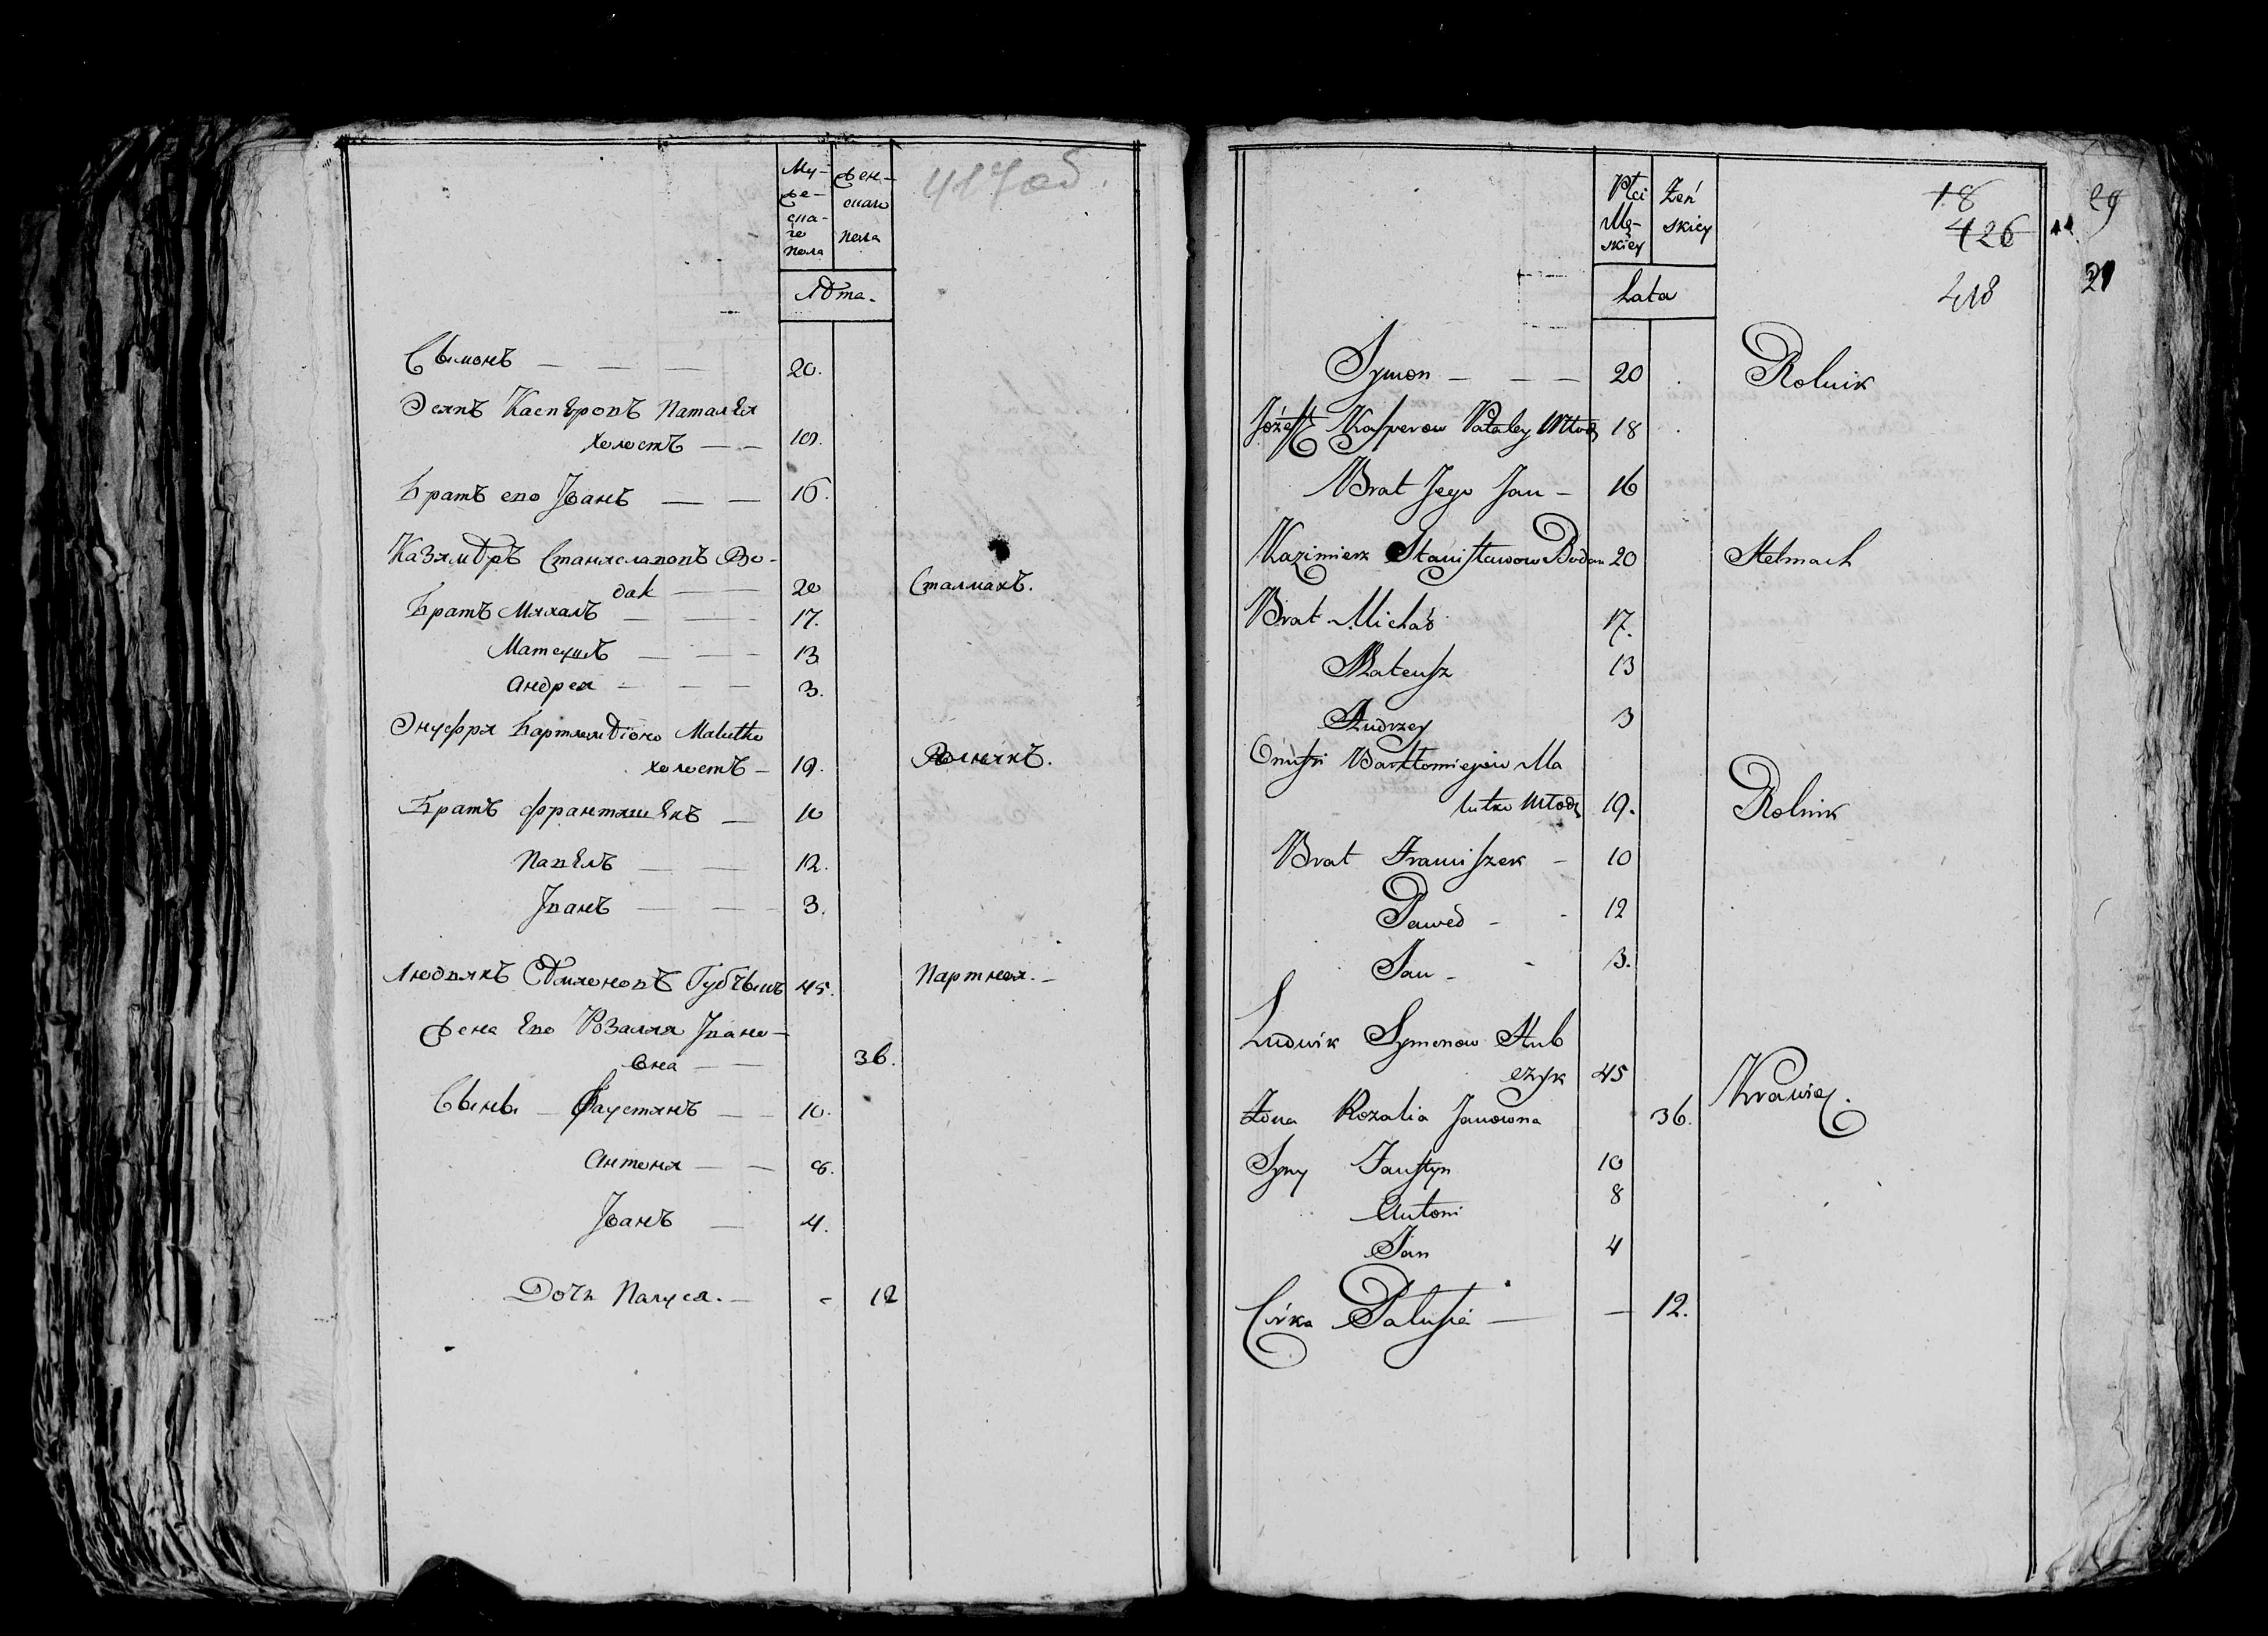 Му-
же-
ска-
го
пола
Жен-
скаго
пола
417об.
Лѣта.
Сымонъ — — — 20.
Осипъ Касперовъ Паталей
холостъ — — 18.
Братъ его Іванъ — — 16.
Казимѣръ Станиславовъ Бо-
dak — — 20 Сталмахъ.
Братъ Михалъ — — 17.
Матеушъ — — 13
Андрей — — — 3.
Онуфри Бартломѣіовъ Malutko
холостъ — 19. Рольникъ.
Братъ Франтишекъ — 10
Павелъ — — 12.
Іванъ — — — 3.
Людвикъ Сымоновъ 45. Партной. —
Жена Его Розалія Івано-
вна — — 36.
Сыны — Фаустинъ — — 10.
Антоній — — 8.
Іванъ — 4.
Дочь Палуся. — - 12
Płci
Mę-
skiey
Żeń
skiey
18
426
418
29
21
Lata
Symon — — — 20 . Rolnik
Józeff Kasperow Pataley Młodz 18 .
Brat Jego Jan — 16
Kazimierz Stanisławow Bodak 20 Stelmach
Brat Michał 17.
Mateusz 13
Andrzey 3
Onufri Bartłomiejow Ma
lutko Młodz 19. Rolnik
Brat Franciszek — 10
Paweł - - 12
Jan - - 3.
Ludwik Symonow Stub
czyk 45
Żona Rozalia Janowna 36. Krawiec.
Syny Faustyn 10
Antoni 8
Jan 4
Córka Palusia — — 12.